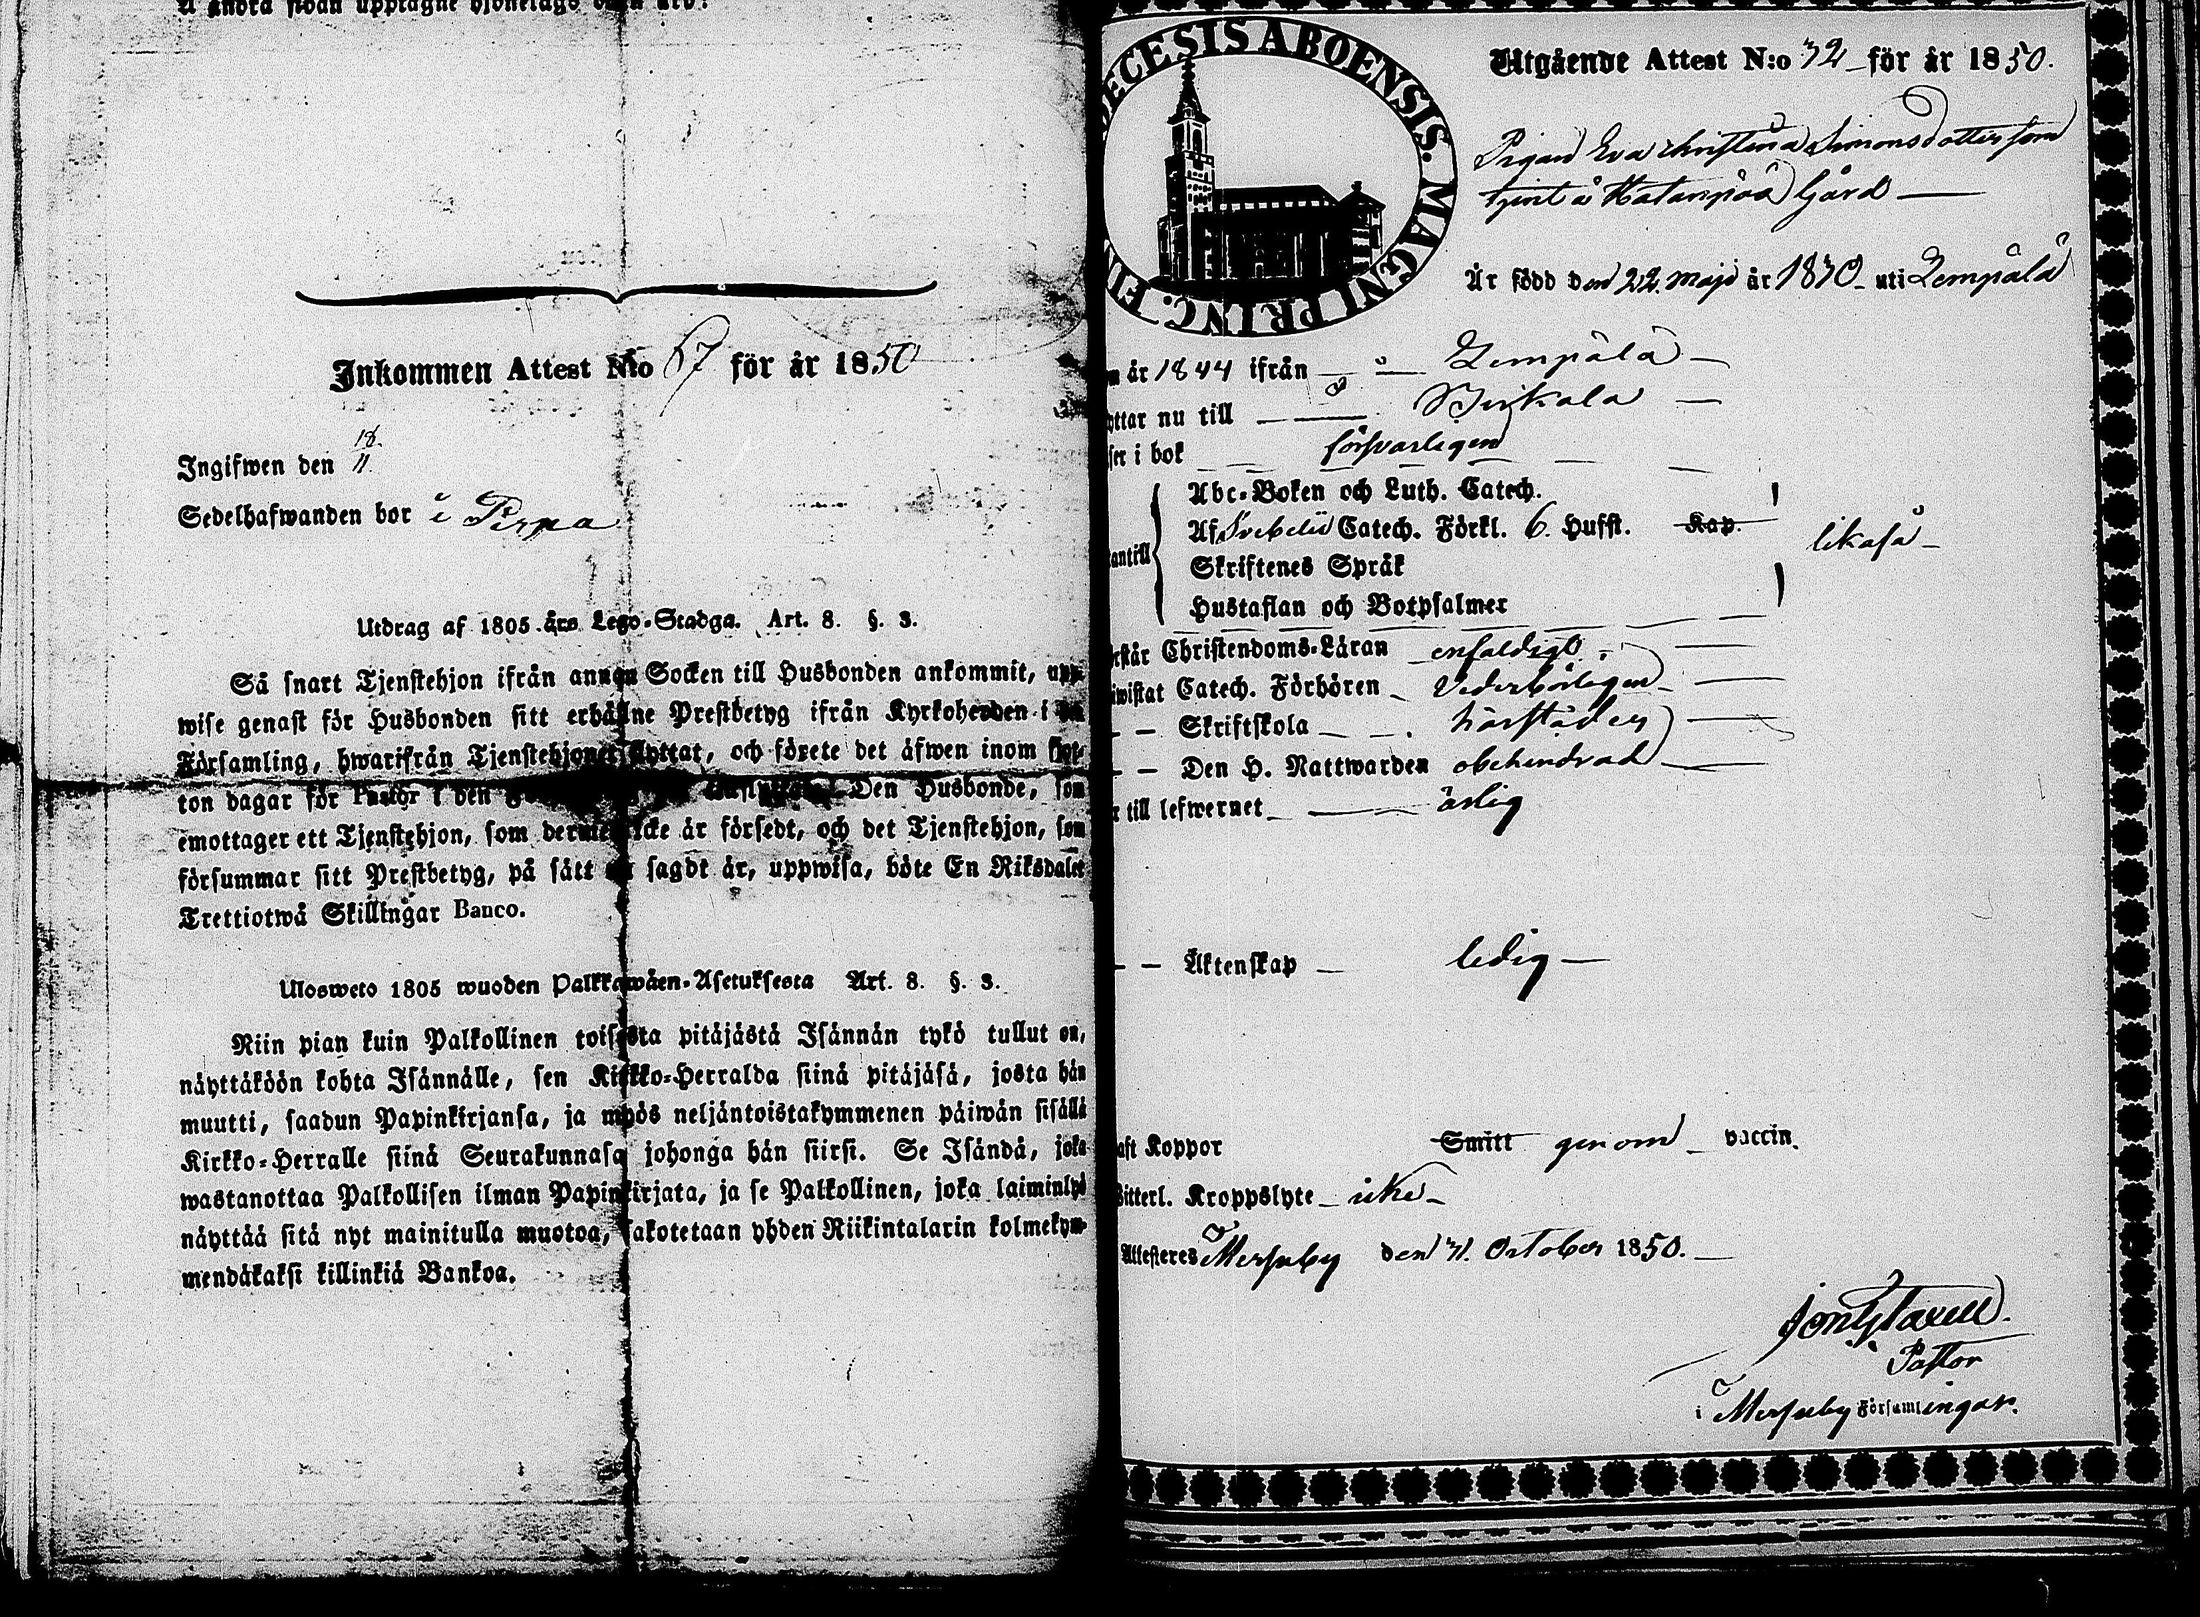 Å andra sidan upptagne
Inkommen Attest N:o 67 för år 1850
Ingifwen den 18/11
Sedelhafwanden bor i Pirpa
Utdrag af 1805 års Lego-Stadga. Art. 8. §. 3.
Så snart Tjenstehjon ifrån annan Socken till Husbonden ankommit, upp-
wise genast för Husbonden sitt erhållne Prestbetyg ifrån Kyrkoherden i den
Församling, hwarifrån Tjenstehjonet flyttat, och förete det äfwen inom fjor-
ton dagar för Pastor i den Den Husbonde, som
emottager ett Tjenstehjon, som dermed icke är försedt, och det Tjenstehjon, som
försummar sitt Prestbetyg, på sätt sagdt är, uppwisa, böte En Riksdaler
Trettiotwå Skillingar Banco.
Ulosweto 1805 wuoden Palkkawäen-Asetuksesta Art. 8. §. 3.
Niin pian kuin Palkollinen toisesta pitäjästä Isännän tykö tullut on,
näyttäköön kohta Isännälle, sen Kirkko-Herralda siinä pitäjäsä, josta hän
muutti, saadun Papinkirjansa, ja myös neljäntoistakymmenen päiwän sisällä
Kirkko-Herralle siinä Seurakunnasa johonga hän siirsi. Se Isändä, joka
wastanottaa Palkollisen ilman Papinkirjata, ja se Palkollinen, joka laiminlyö
näyttää sitä nyt mainitulla muotoa, sakotetaan yhden Riikintalarin kolmekym-
mendäkaksi killinkiä Bankoa.
ECESIS ABOENSIS. MAGNI PRINC. FIN
Utgående Attest N:o 32 för år 1850.
Pigan Eva Christina Simonsdotter som
tjent å Hatanpää Gård
Är född den 22. maji år 1830 uti Lempälä
år 1844 ifrån Lempälä
ttar nu till Birkala
ser i bok försvarligen
Abc-Boken och Luth. Catech.
Af Svebelii Catech. Förkl. 6. Hufst. Kap. likaså
antill
Skriftenes Språk
Hustaflan och Botpsalmer
rstår Christendoms-Läran enfaldigt
iwistat Catech. Förhören Vederbörligen
Skriftskola härstädes
Den H. Nattwarden obehindrad
r till lefwernet ärlig
Äktenskap ledig
aft Koppor Smitt genom vaccin.
itterl. Kroppslyte icke
Attesteres Messuby den 31. October 1850.
Pastor
i Messuby Församlingar.